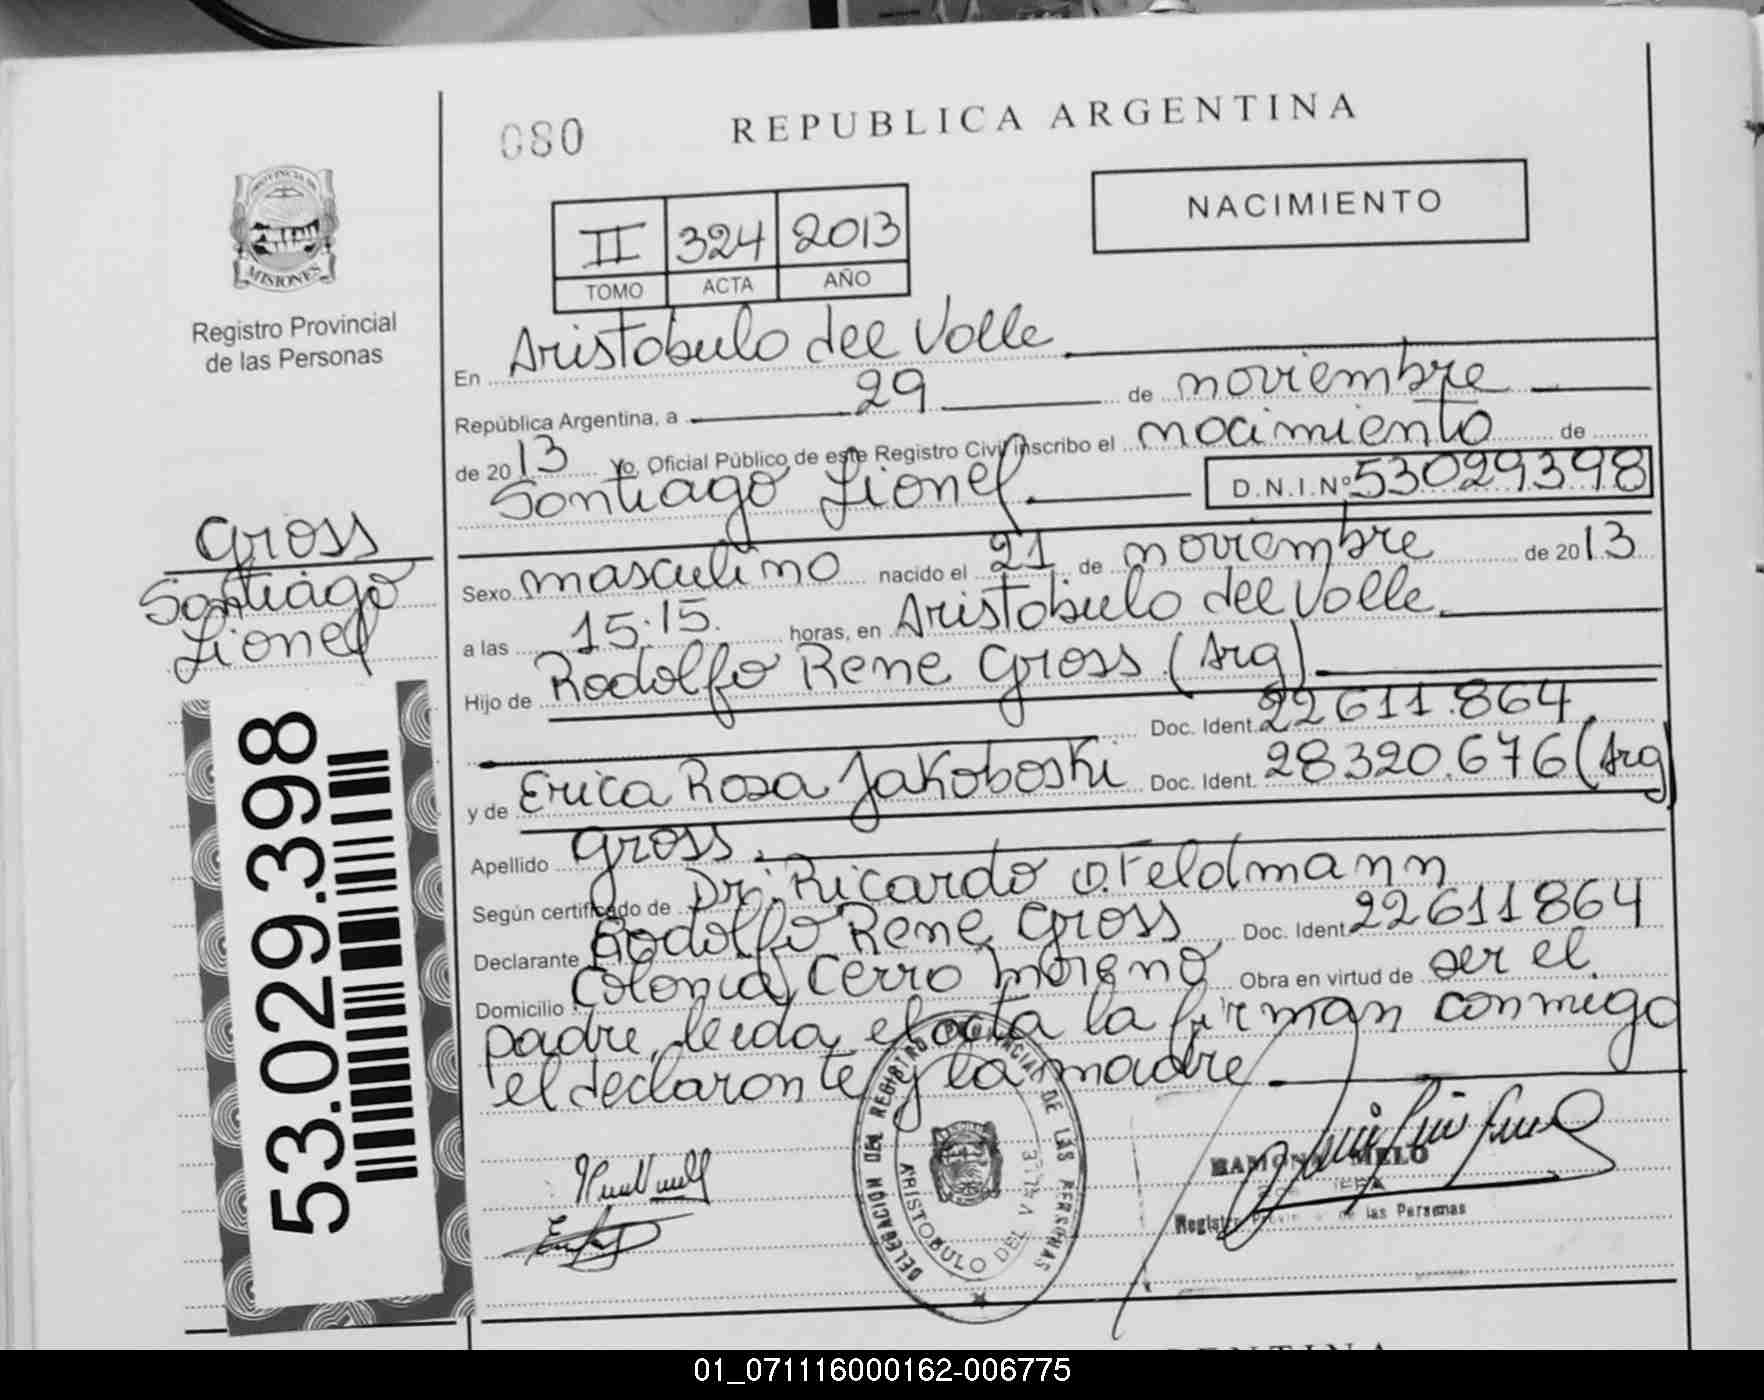 080
REPUBLICA ARGENTINA
PROVINCIA DE
MISIONES
Registro Provincial
de las Personas
NACIMIENTO
II 324 2013
TOMO ACTA AÑO
En Aristobulo del Valle
República Argentina, a 29 de noviembre
de 2013 Yo, Oficial Público de este Registro Civil inscribo el nacimiento de
Santiago Lionel D.N.I.Nº 53029398
Gross
Santiago
Lionel
Sexo masculino nacido el 21 de noviembre de 2013
a las 15:15. horas, en Aristobulo del Valle
Hijo de Rodolfo Rene Gross (Arg)
Doc. Ident. 22611.864
y de Erica Rosa Jakoboski Doc. Ident. 28320.676 (Arg)
Apellido Gross.
Según certificado de Dr. Ricardo O. Feldmann
Declarante Rodolfo Rene Gross Doc. Ident. 22611864
Domicilio Colonia Cerro Moreno Obra en virtud de ser el
padre, leida el acta la firman conmigo
el declarante y la madre
53.029.398
DELEGACION DEL REGISTRO PROVINCIAL DE LAS PERSONAS
ARISTOBULO DEL VALLE
RAMONA MELO
JEFA
Registro Provin de las Personas
01_071116000162-006775